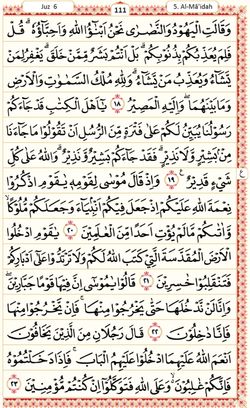 Juz 6
111
5. Al-Mâ'idah
وَقَالَتِ الْيَهُوْدُ وَالنَّصٰرٰى نَحْنُ اَبْنٰۤؤُا اللّٰهِ وَاَحِبَّاۤؤُهٗ ۗ قُلْ
فَلِمَ يُعَذِّبُكُمْ بِذُنُوْبِكُمْ ۗ بَلْ اَنْتُمْ بَشَرٌ مِّمَّنْ خَلَقَ ۗ يَغْفِرُ لِمَنْ
يَّشَاۤءُ وَيُعَذِّبُ مَنْ يَّشَاۤءُ ۗ وَلِلّٰهِ مُلْكُ السَّمٰوٰتِ وَالْاَرْضِ
وَمَا بَيْنَهُمَا ۖ وَاِلَيْهِ الْمَصِيْرُ ١٨ يٰٓاَهْلَ الْكِتٰبِ قَدْ جَاۤءَكُمْ
رَسُوْلُنَا يُبَيِّنُ لَكُمْ عَلٰى فَتْرَةٍ مِّنَ الرُّسُلِ اَنْ تَقُوْلُوْا مَا جَاۤءَنَا
مِنْۢ بَشِيْرٍ وَّلَا نَذِيْرٍ ۗ فَقَدْ جَاۤءَكُمْ بَشِيْرٌ وَّنَذِيْرٌ ۗ وَاللّٰهُ عَلٰى كُلِّ
شَيْءٍ قَدِيْرٌ ١٩ وَاِذْ قَالَ مُوْسٰى لِقَوْمِهٖ يٰقَوْمِ اذْكُرُوْا
نِعْمَةَ اللّٰهِ عَلَيْكُمْ اِذْ جَعَلَ فِيْكُمْ اَنْۢبِيَاۤءَ وَجَعَلَكُمْ مُّلُوْكًا
وَّاٰتٰىكُمْ مَّا لَمْ يُؤْتِ اَحَدًا مِّنَ الْعٰلَمِيْنَ ٢٠ يٰقَوْمِ ادْخُلُوا
الْاَرْضَ الْمُقَدَّسَةَ الَّتِيْ كَتَبَ اللّٰهُ لَكُمْ وَلَا تَرْتَدُّوْا عَلٰٓى اَدْبَارِكُمْ
فَتَنْقَلِبُوْا خٰسِرِيْنَ ٢١ قَالُوْا يٰمُوْسٰٓى اِنَّ فِيْهَا قَوْمًا جَبَّارِيْنَ ۖ
وَاِنَّا لَنْ نَّدْخُلَهَا حَتّٰى يَخْرُجُوْا مِنْهَا ۚ فَاِنْ يَّخْرُجُوْا مِنْهَا
فَاِنَّا دٰخِلُوْنَ ٢٢ قَالَ رَجُلَانِ مِنَ الَّذِيْنَ يَخَافُوْنَ
اَنْعَمَ اللّٰهُ عَلَيْهِمَا ادْخُلُوْا عَلَيْهِمُ الْبَابَ ۚ فَاِذَا دَخَلْتُمُوْهُ
فَاِنَّكُمْ غٰلِبُوْنَ ۚ وَعَلَى اللّٰهِ فَتَوَكَّلُوْٓا اِنْ كُنْتُمْ مُّؤْمِنِيْنَ ٢٣
ع